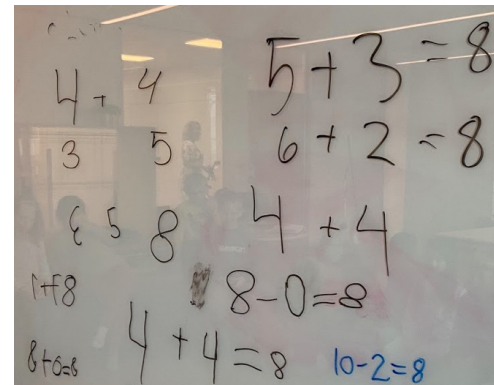 4 + 4
5 + 3 = 8
3 5
6 + 2 = 8
3 5 8
4 + 4
1+8
8-0=8
8+0=8
4 + 4 = 8
10-2=8